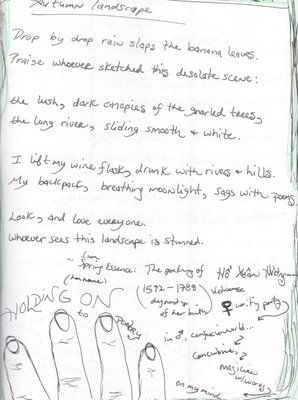 Autumn Landscape
Drop by drop rain slaps the banana leaves.
Praise whoever sketched this desolate scene:
the lush, dark canopies of the gnarled trees,
the long river, sliding smooth & white.
I lift my wine flask, drunk with rivers & hills.
My backpack, breathing moonlight, sags with poems.
Look, and love everyone.
Whoever sees this landscape is stunned.
... from
Spring Essence: The poetry of Hồ Xuân Hương
(her name)
(1592-1788) Vietnamese
dynasty
of her birth
♀ writing poetry
in ♂, confucian world...
concubines,
magician
w/words,
on my mind
HOLDING ON
to
poetry